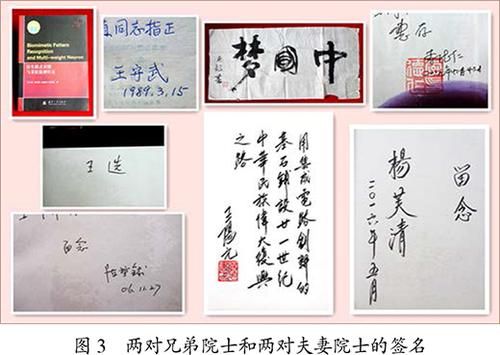 Biomimetic Pattern
Recognition
and Multi-weight Neuron
同志指正
王守武
1989.3.15
中国梦
惠存
王选
留念
06.11.27
用集成电路创新的
基石铺设廿一世纪
中华民族伟大复兴
之路
王阳元
留念
楊芙清
二〇一六年五月
图3 两对兄弟院士和两对夫妻院士的签名